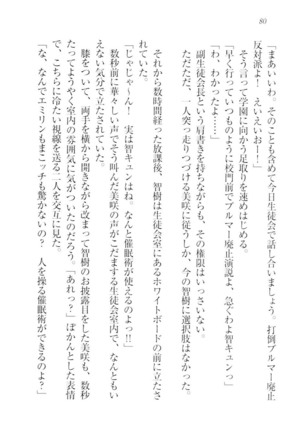 80
「まあいいわ。そのことも含めて今日生徒会で話し合いましょ。打倒ブルマー廃止
反対派よ！　えいえいおー！」
そう言って学園に向かう足取りを速めはじめる。
「早く行っていつものように校門前でブルマー廃止演説よ、急ぐわよ智キュン」
「わ、わかったよ……」
副生徒会長という肩書きを持ちながらも、その権限はいっさいない。
ただただ、一人突っ走りつづける美咲に従うしか、今の智樹に選択肢はなかった。
それから数時間経った放課後、智樹は生徒会室にあるホワイトボードの前に立たさ
れていた。
「じゃじゃ～ん！　実は智キュンはね。なんと催眠術が使えるのよっ!!」
数秒前に華々しい声でそう叫んだ美咲の声がこだまする生徒会室内で、なんともい
えない気分で立たされていた。
膝をついて、両手を横から開きながら改まって智樹のお披露目をした美咲も、数秒
たってようやく室内の雰囲気に気がついたのだろう。「あれっ？」ぽかんとした表情
で、こちらに冷たい視線を送る二人を交互に見た。
「な、なんでエミリンもまこッチも驚かないの？　人を操る催眠術ができるのよ？